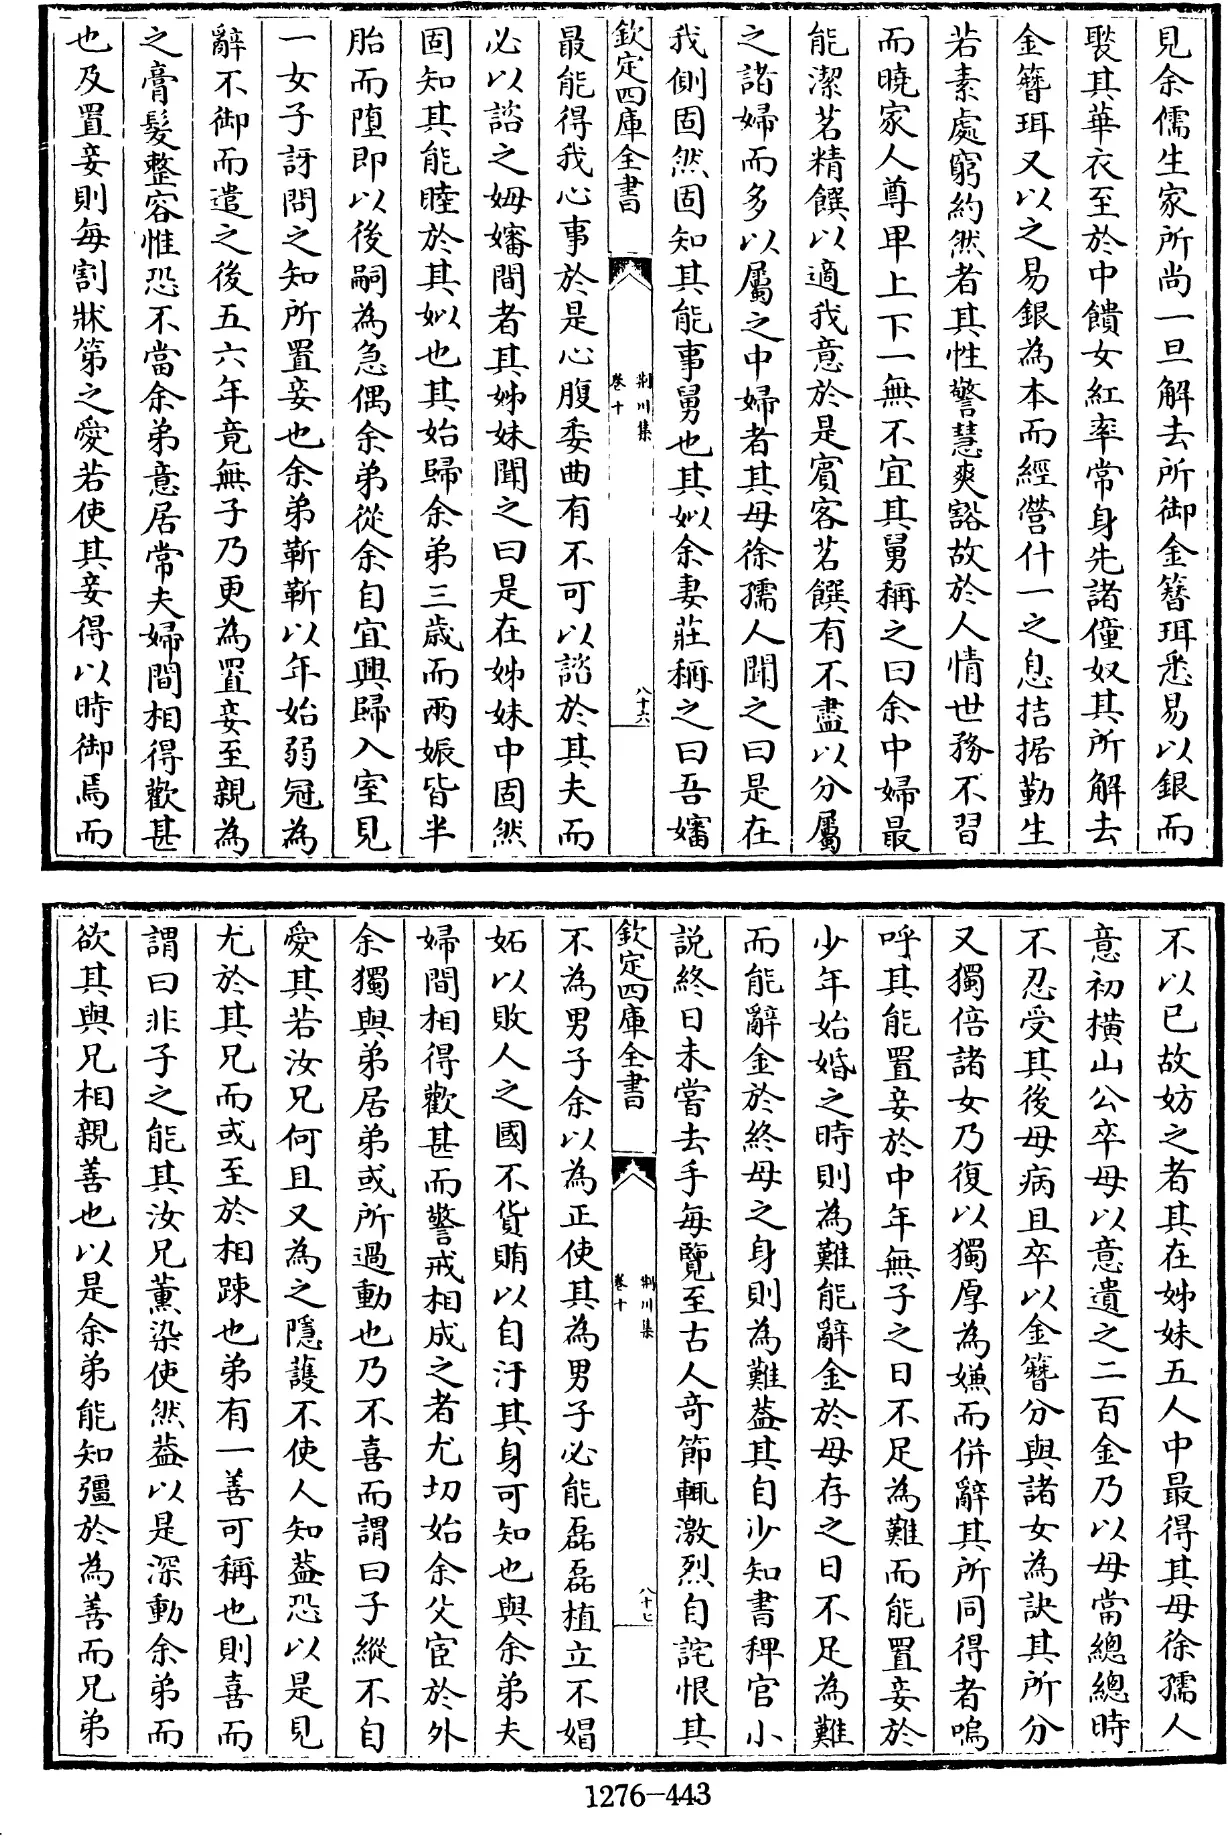 見余儒生家所尚一旦解去所御金簪珥悉易以銀而
褧其華衣至於中饋女紅率常身先諸僮奴其所解去
金簪珥又以之易銀為本而經營什一之息拮据勤生
若素處窮約然者其性警慧爽豁故於人情世務不習
而曉家人尊卑上下一無不宜其舅稱之曰余中婦最
能潔茗精饌以適我意於是賓客茗饌有不盡以分屬
之諸婦而多以屬之中婦者其母徐孺人聞之曰是在
我側固然固知其能事舅也其姒余妻莊稱之曰吾嬸
欽定四庫全書
荆川集
卷十
八十六
最能得我心事於是心腹委曲有不可以諮於其夫而
必以諮之姆嬸間者其姊妹聞之曰是在姊妹中固然
固知其能睦於其姒也其始歸余弟三歳而兩娠皆半
胎而墮即以後嗣為急偶余弟從余自宜興歸入室見
一女子訝問之知所置妾也余弟靳靳以年始弱冠為
辭不御而遣之後五六年竟無子乃更為置妾至親為
之膏髮整容惟恐不當余弟意居常夫婦間相得歡甚
也及置妾則每割牀第之愛若使其妾得以時御焉而
不以已故妨之者其在姊妹五人中最得其母徐孺人
意初橫山公卒母以意遺之二百金乃以母當總總時
不忍受其後母病且卒以金簪分與諸女為訣其所分
又獨倍諸女乃復以獨厚為嫌而併辭其所同得者嗚
呼其能置妾於中年無子之日不足為難而能置妾於
少年始婚之時則為難能辭金於母存之日不足為難
而能辭金於終母之身則為難葢其自少知書稗官小
說終日未嘗去手每覽至古人奇節輒激烈自詫恨其
欽定四庫全書
荆川集
卷十
八十七
不為男子余以為正使其為男子必能磊磊植立不娼
妬以敗人之國不貨賄以自汙其身可知也與余弟夫
婦間相得歡甚而警戒相成之者尤切始余父宦於外
余獨與弟居弟或所過動也乃不喜而謂曰子縱不自
愛其若汝兄何且又為之隱護不使人知葢恐以是見
尤於其兄而或至於相踈也弟有一善可稱也則喜而
謂曰非子之能其汝兄薰染使然葢以是深動余弟而
欲其與兄相親善也以是余弟能知彊於為善而兄弟
1276-443